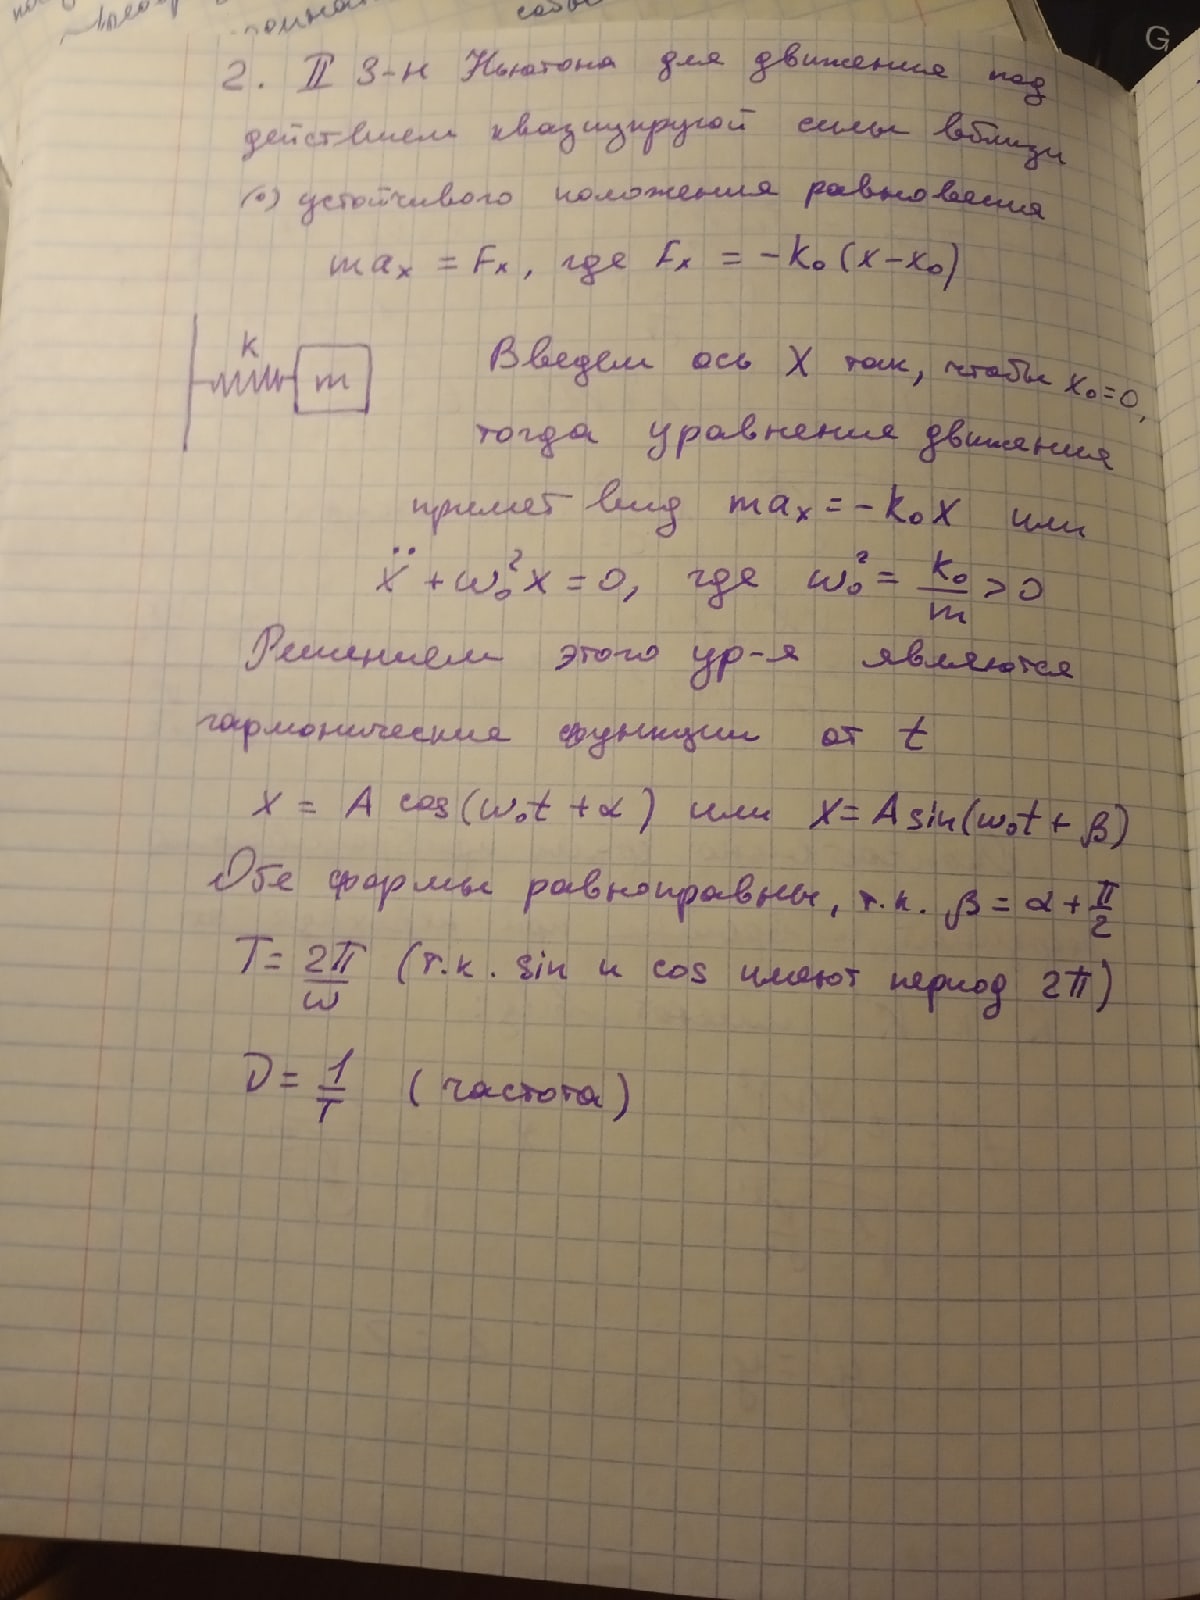 2. II З-н Ньютона для движения под
действием квазиупругой силы вблизи
(·) устойчивого положения равновесия
maₓ = Fₓ, где Fₓ = -k₀(x-x₀)
k
m
Введем ось X так, чтобы x₀=0,
тогда уравнение движения
примет вид maₓ = -k₀x или
ẍ + ω₀²x = 0, где ω₀² = k₀/m > 0
Решением этого ур-я являются
гармонические функции от t
x = A cos(ω₀t + α) или x = A sin(ω₀t + β)
Обе формы равноправны, т.к. β = α + π/2
T = 2π/ω (т.к. sin и cos имеют период 2π)
ν = 1/T (частота)
G